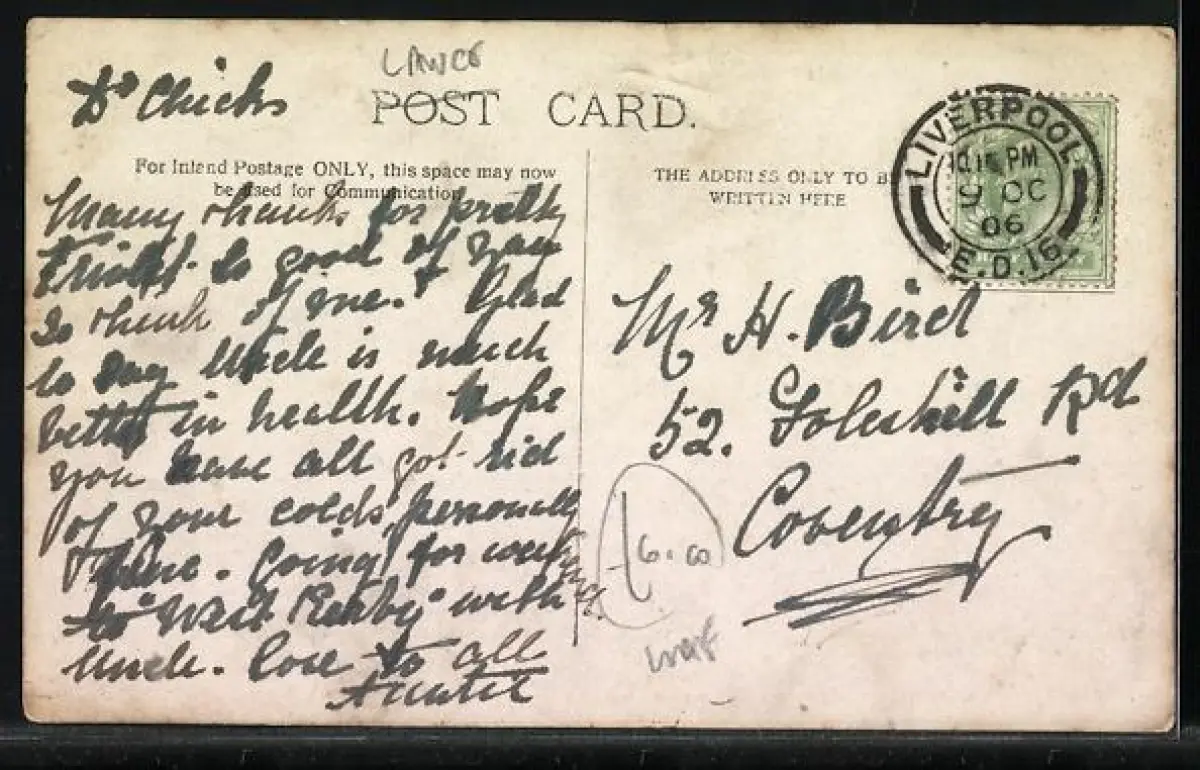 Dr Chicks
POST CARD.
For Inland Postage ONLY, this space may now
be used for Communication
THE ADDRESS ONLY TO B
WRITTEN HERE
LIVERPOOL
PM
9 OC
06
E.D.16
Many thanks for pretty
So good of you
to think of me. Glad
to say Uncle is much
better in health. Hope
you have all got rid
of your colds, personally
I have. Going for week
to "West Kirby" with
Uncle. Love to all
Auntie
Mr H. Bird
52. Foleshill Rd
Coventry
6.00